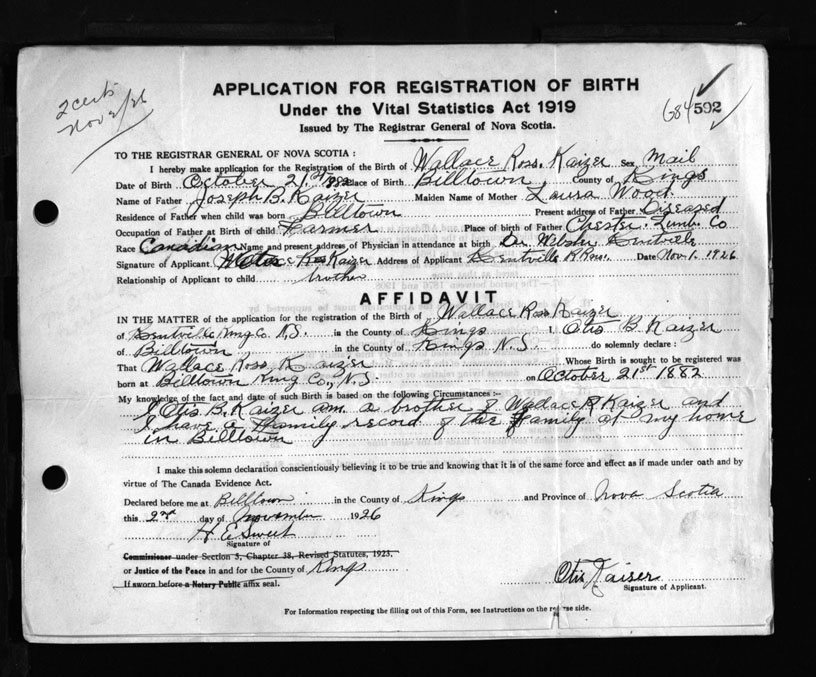 2 certs
Nov 2/26
684 592
APPLICATION FOR REGISTRATION OF BIRTH
Under the Vital Statistics Act 1919
Issued by The Registrar General of Nova Scotia.
TO THE REGISTRAR GENERAL OF NOVA SCOTIA :
I hereby make application for the Registration of the Birth of Wallace Ross. Kaizer Sex Mail
Date of Birth October 21st 1882 Place of Birth Billtown, County of Kings
Name of Father Joseph B. Kaizer Maiden Name of Mother Laura Wood.
Residence of Father when child was born Billtown Present address of Father Diseased
Occupation of Father at Birth of child Farmer Place of birth of Father Chester. Lunbu Co
Race Canadian Name and present address of Physician in attendance at birth Dr. Webster Kentville
Signature of Applicant Wallace R Kaizer Address of Applicant Kentville R R no 1. Date Nov. 1. 1926
Relationship of Applicant to child brother
AFFIDAVIT
IN THE MATTER of the application for the registration of the Birth of Wallace Ross Kaizer
of Kentville King Co. N.S. in the County of Kings I, Otis B Kaizer
of Billtown in the County of Kings N.S. do solemnly declare :
That Wallace Ross Kaizer Whose Birth is sought to be registered was
born at Billtown King Co., N.S. on October 21st 1882
My knowledge of the fact and date of such Birth is based on the following Circumstances :-
I Otis B. Kaizer am a brother of Wallace R Kaizer and
I have a Family record of the Family at my home
in Billtown
I make this solemn declaration conscientiously believing it to be true and knowing that it is of the same force and effect as if made under oath and by
virtue of The Canada Evidence Act.
Declared before me at Billtown in the County of Kings and Province of Nova Scotia
this 2nd day of November 1926
H E Sweet
Signature of
Commissioner under Section 5, Chapter 38, Revised Statutes, 1923,
or Justice of the Peace in and for the County of Kings
If sworn before a Notary Public affix seal.
Otis Kaiser
Signature of Applicant.
For Information respecting the filling out of this Form, see Instructions on the reverse side.